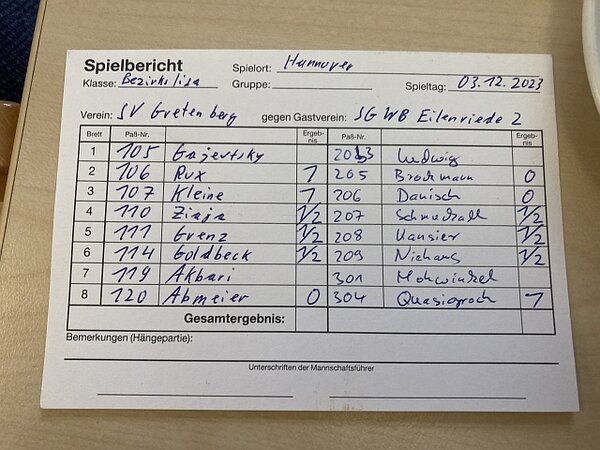 Spielbericht Spielort: Hannover
Klasse: Bezirksliga Gruppe: Spieltag: 03.12.2023
Verein: SV Gretenberg gegen Gastverein: SG WB Eilenriede 2
Brett Paß-Nr. Ergeb-nis Paß-Nr. Ergeb-nis
1 105 Gajevtsky Ludwig
2 106 Rux 1 205 Brockmann 0
3 107 Kleine 1 206 Danisch 0
4 110 Ziaja 1/2 207 1/2
5 111 Grenz 1/2 208 Kansier 1/2
6 114 Goldbeck 1/2 209 Niehaus 1/2
7 119 Akbari 301 Mohwinkel
8 120 Abmeier 0 304 Quasigroch 1
Gesamtergebnis:
Bemerkungen (Hängepartie):
Unterschriften der Mannschaftsführer